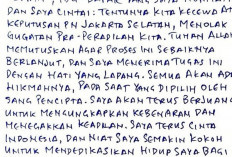 DAN SAYA CINTAI: TENTUNYA KITA KECEWA AT
KEPUTUSAN PN JAKARTA SELATAN, MENOLAK
GUGATAN PRA-PERADILAN KITA. TUHAN ALLAH
MEMUTUSKAN AGAR PROSES INI SEBAIKNYA
BERLANJUT, DAN SAYA MENERIMA TUGAS INI
DENGAN HATI YANG LAPANG. SEMUA AKAN ADA
HIKMAHNYA, PADA SAAT YANG DIPILIH OLEH
SANG PENCIPTA. SAYA AKAN TERUS BERJUANG
UNTUK MENGUNGKAPKAN KEBENARAN DAN
MENEGAKKAN KEADILAN. SAYA TERUS CINTA
INDONESIA, DAN NIAT SAYA SEMAKIN KOKOH
UNTUK MENDEDIKASIKAN HIDUP SAYA BAGI